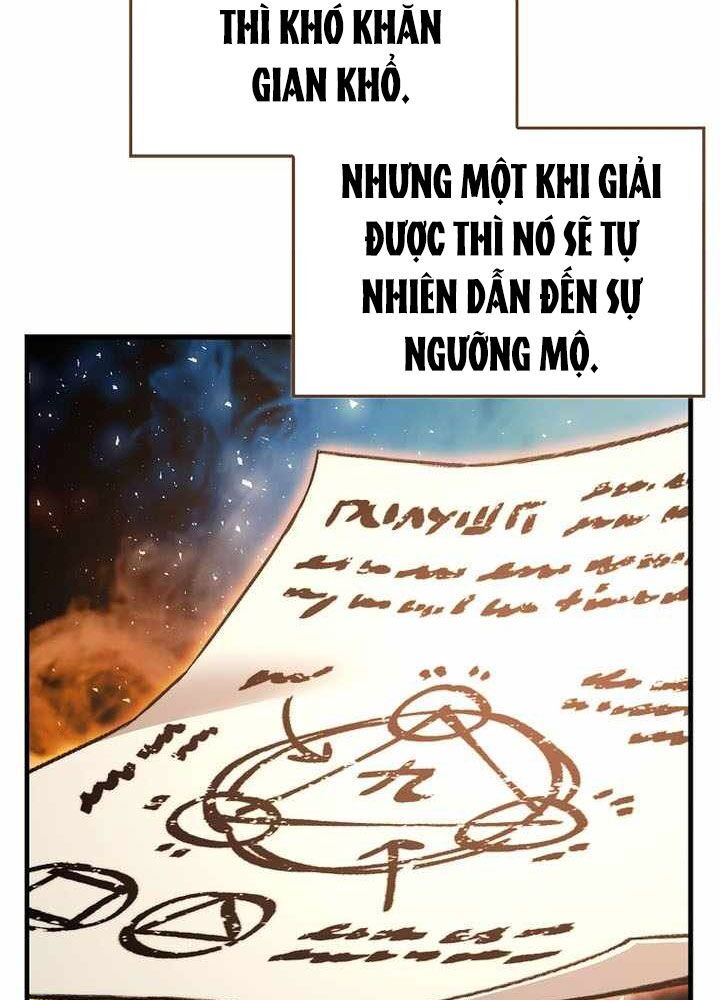 THÌ KHÓ KHĂN
GIAN KHỔ.
NHƯNG MỘT KHI GIẢI
ĐƯỢC THÌ NÓ SẼ TỰ
NHIÊN DẪN ĐẾN SỰ
NGƯỠNG MỘ.